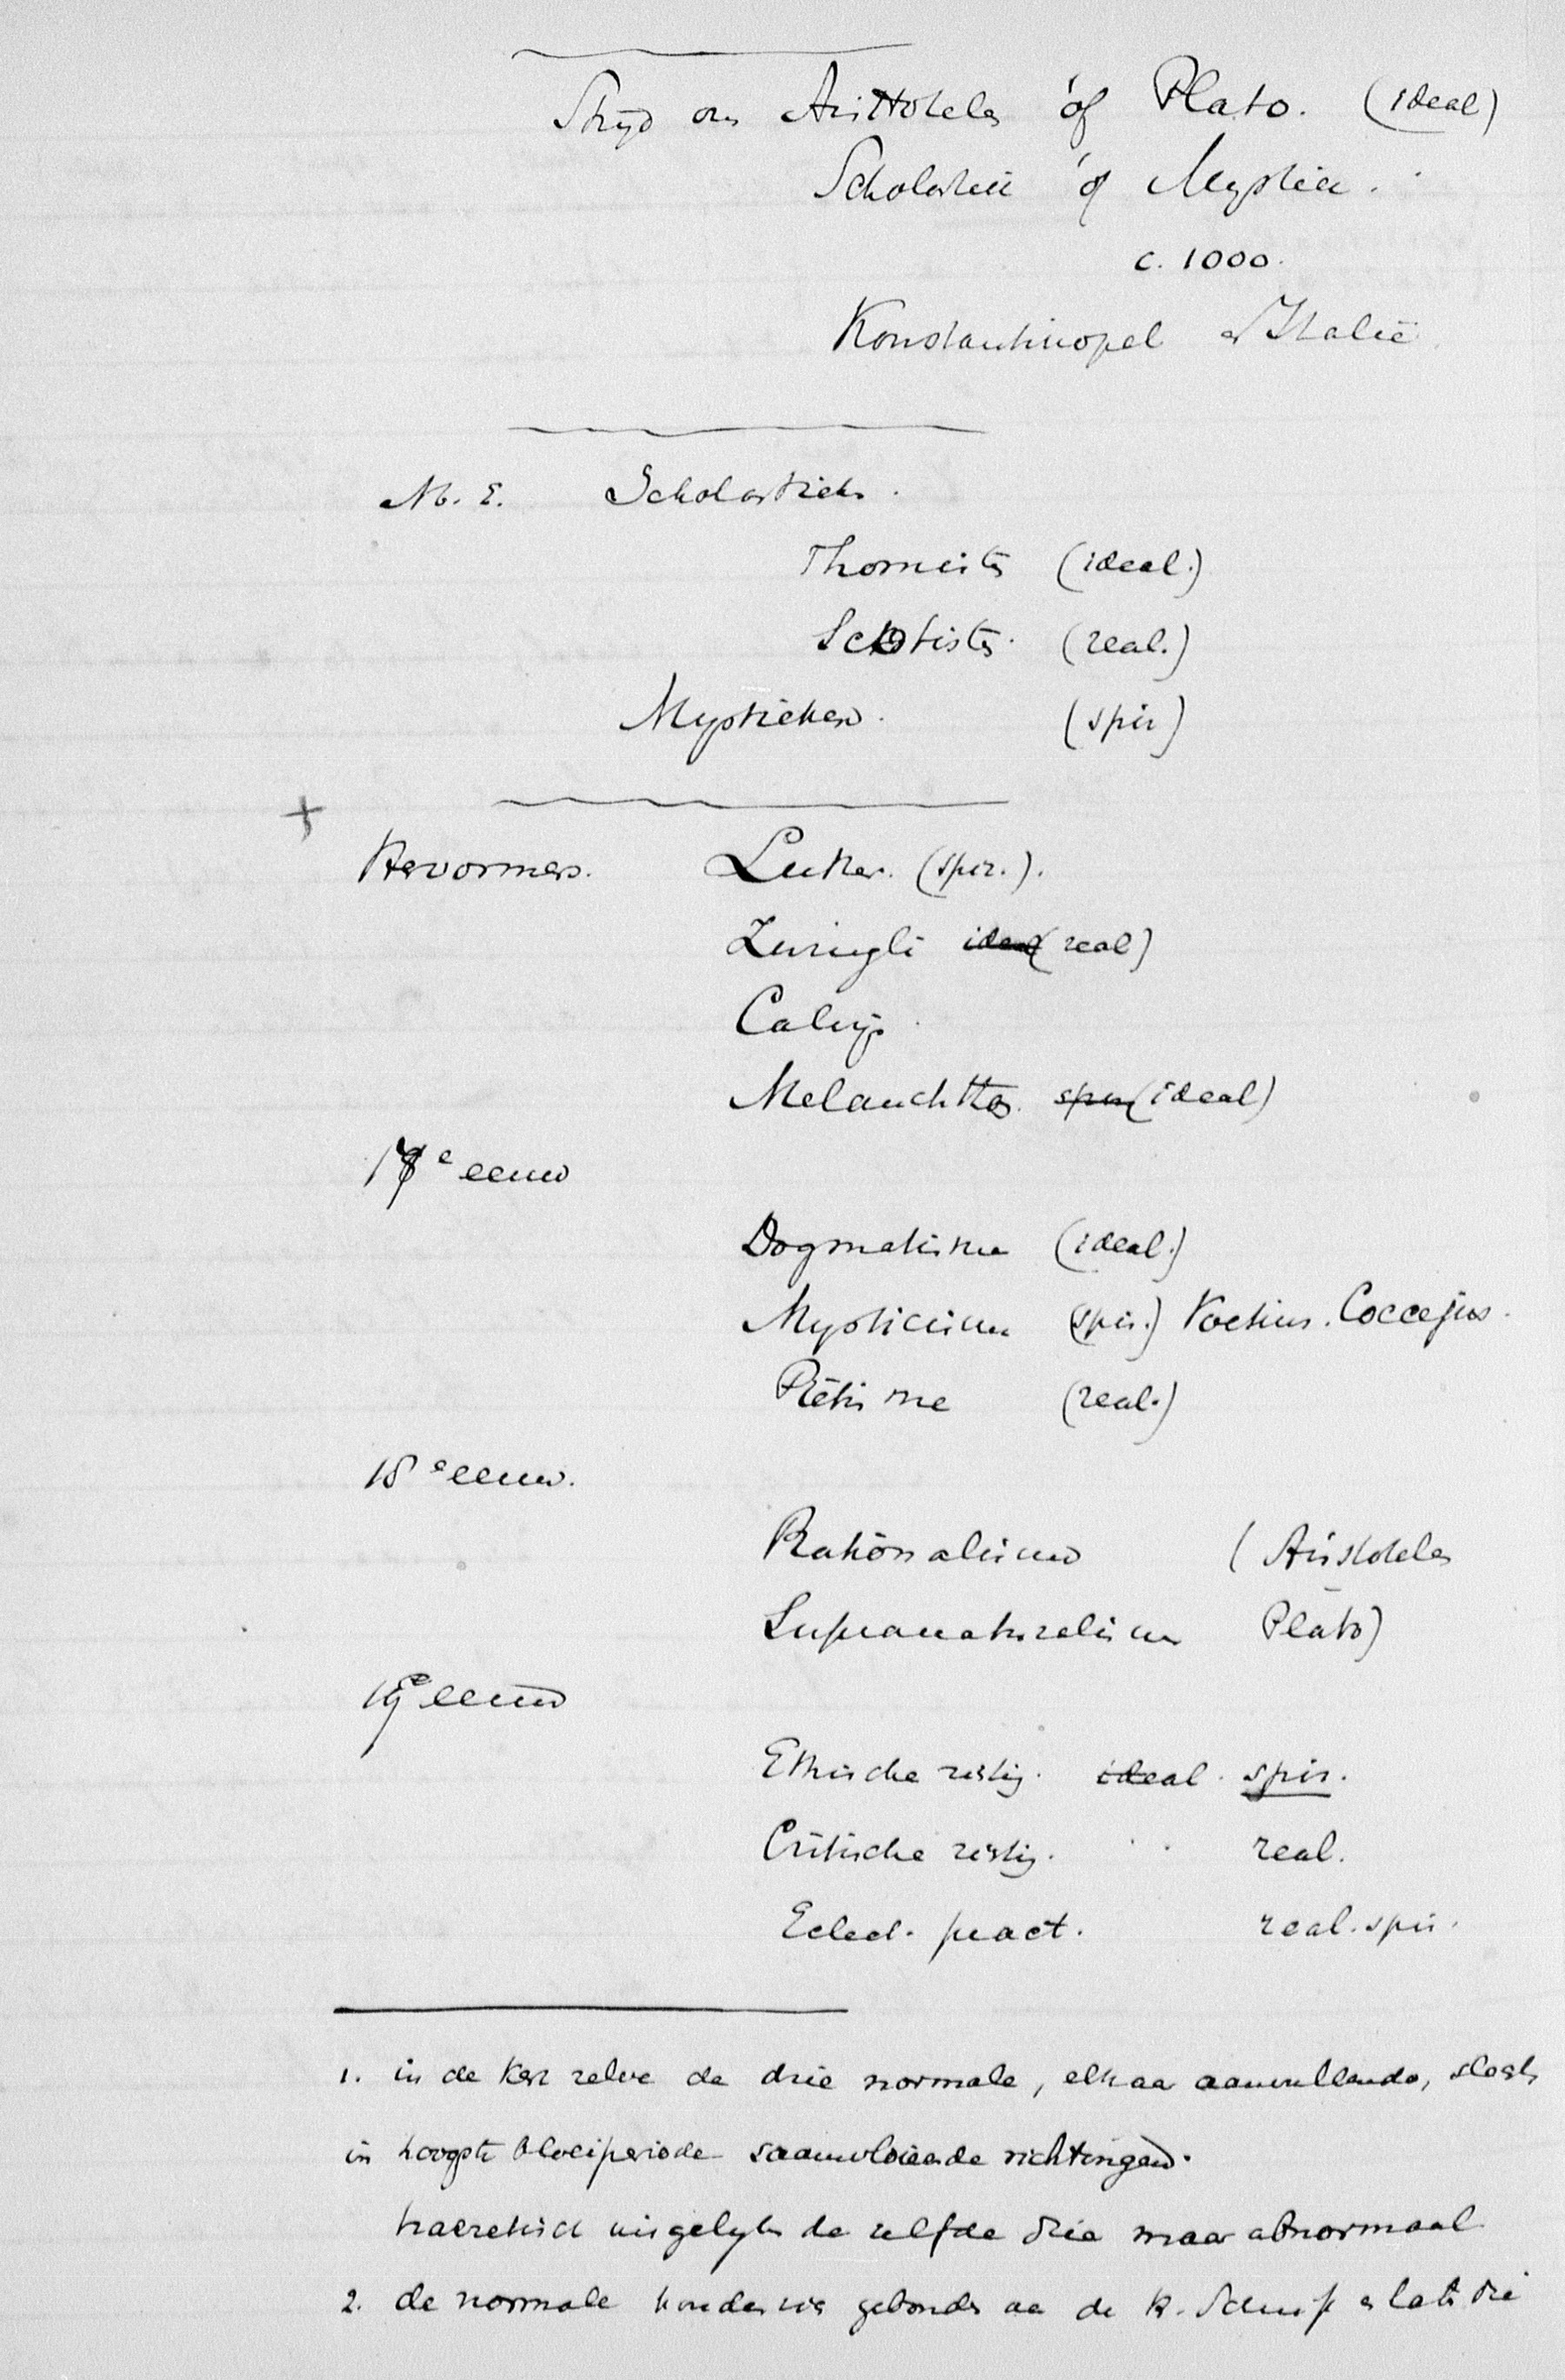 Strijd om Aristoteles óf Plato. (ideal)
Scholastiek óf Mystiek.
c. 1000.
Konstantinopel en Italië.
M. E. Scholastiek.
Thomisten (ideal.)
Scotisten. (real.)
Mystieken. (spir)
+
Hervormers. Luther. (spir.).
Zwingli ideal (real)
Calvijn.
Melanchthon. spir (ideal)
17e eeuw
Dogmatisme (ideal.)
Mysticisme (spir.) Voetius. Coccejus.
Piëtisme (real.)
18e eeuw.
Rationalisme (Aristoteles
Supranaturalisme Plato)
19e eeuw
Ethische richtg. ideal. spir.
Critische richtg. real.
Eclect. pract. real. spir.
1. in de Kerk zelve de drie normale, elkaar aanvullende, slechts
in hoogste bloeiperiode saamvloeiende richtingen.
haeretisch insgelijks de zelfde drie maar abnormaal
2. de normale houden zich gebonden aan de H. Schrift en laten die